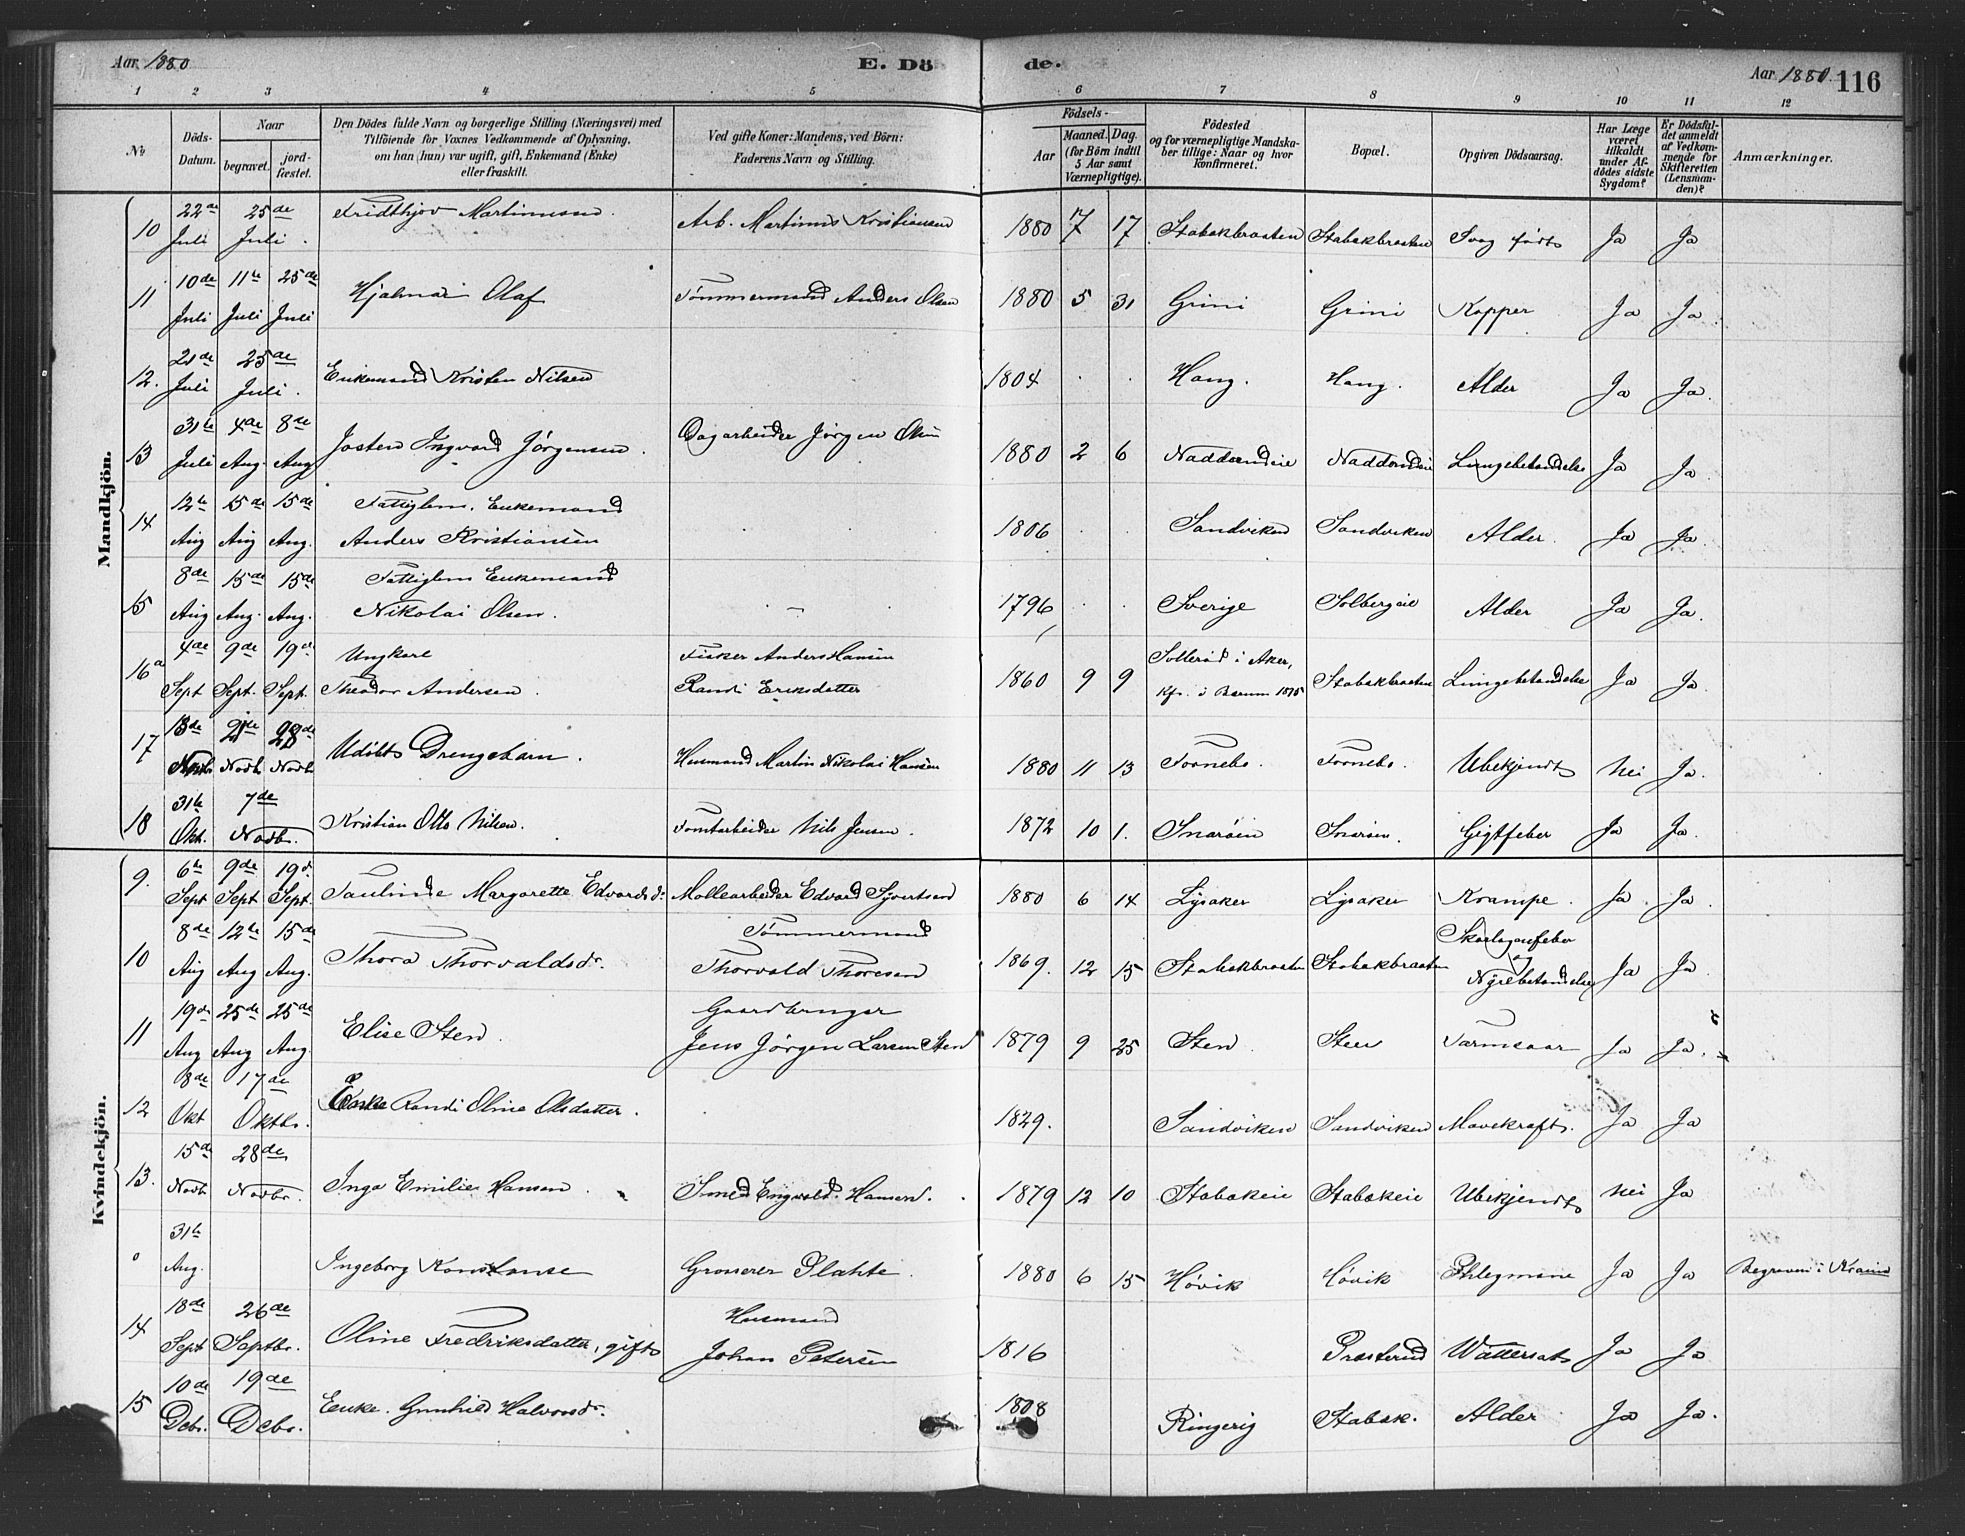 Aar 1880 E. Dö de. Aar 1880. 116
1 2 3 4 5 6 7 8 9 10 11 12
No
Döds-Datum.
Naar
begravet.
jord-fæstet.
Den Dödes fulde Navn og borgerlige Stilling (Næringsvei) med
Tilföiende for Voxnes Vedkommende af Oplysning,
om han (hun) var ugift, gift, Enkemand (Enke)
eller fraskilt.
Ved gifte Koner: Mandens, ved Börn:
Faderens Navn og Stilling.
Födsels-
Aar
Maaned. Dag.
(for Börn indtil
5 Aar samt
Værnepligtige).
Födested
og for værnepligtige Mandska-
ber tillige: Naar og hvor
konfirmeret.
Bopæl.
Opgiven Dödsaarsag.
Har Læge
været
tilkaldt
under Af-
dödes sidste
Sygdom?
Er Dödsfal-
det anmeldt
af Vedkom-
mende for
Skifteretten
(Lensman-
den)?
Anmærkninger.
Mandkjön.
10 22de Juli 25de Juli. Fridthjov Martinussen Arb. Martinus Kristiansen 1880 7 17 Stabækbraaten Stabækbraaten Svag födt Ja Ja
11 10de Juli 11te Juli 25de Juli Hjalmar Olaf Tömmermand Anders Olsen 1880 5 31 Grini Grini Kopper Ja Ja
12. 21de Juli 25de Juli. Enkemand Kristen Nilsen 1804 Haug. Haug. Alder Ja Ja.
13 31te Juli 4de Aug. 8de Aug Josten Ingvard Jörgensen. Dagarbeider Jörgen Olsen 1880 2 6 Nadderudeie Nadderudeie Lungebetændelse Ja Ja
14 12te Aug 15de Aug 15de Aug. Fattiglem. Enkemand
Anders Kristiansen 1806 Sandviken Sandviken Alder. Ja Ja.
15 8de Aug 15de Aug. 15de Aug. Fattiglem Enkemand
Nikolai Olsen. 1796 Sverige Solbergeie Alder Ja Ja.
16 4de Sept 9de Sept. 19de Sept. Ungkarl
Theodor Andersen. Fisker Anders Hansen
Randi Eriksdatter 1860 9 9 Solleröd i Aker,
Kfr. i Bærum 1875 Stabækbraaten Lungebetændelse Ja Ja
17 Novbr Novbr. 28de Novbr Udöbt Drengebarn. Husmand Martin Nikolai Hansen 1880 11 13 Fornebo. Fornebo. Ubekjendt Nei Ja.
18 31te Okt. 7de Novbr. Kristian Otto Nilsen. Tomtarbeider Nils Jensen. 1872 10 1. Snaröen Snaröen. Gigtfeber Ja Ja.
Kvindekjön.
9. 6te Sept 9de Sept 19de Sept. Paulinde Margarette Edvardsd: Möllearbeider Edvard Syvertsen 1880 6 14 Lysaker Lysaker Krampe. Ja. Ja.
10 8de Aug 12te Aug 15de Aug. Thora Thorvaldsdr. Tömmermand
Thorvald Thoresen 1869. 12 15 Stabækbraaten Stabækbraaten Skarlagensfeber
og
Nyrebetændelse Ja Ja.
11 19de Aug 25de Aug 25de Aug. Elise Sten. Gaardbruger
Jens Jörgen Larsen Sten 1879 9 25 Sten Sten Tarmsaar Ja Ja.
12 8de Okt 17de Oktbr. Enke Randi Oline Olsdatter. 1829. Sandviken Sandviken Mavekræft. Ja Ja
13. 15de Novbr 28de Novbr. Inga Emilie Hansen Smed Engvald Hansen. 1879 12 10 Stabækeie Stabækeie Ubekjendt Nei Ja
31te Aug. Ingeborg Konstanse Grosserer Plahte. 1880 6 15 Hövik Hövik Phlegmone Ja Ja Begraven i Krania
14 18de Sept 26de Septbr. Oline Fredriksdatter, gift Husmand
Johan Petersen 1816 Præsterud Wattersot Ja Ja
15 10de Dcbr. 19de Dcbr. Enke. Gunhild Halvorsdr. 1808 Ringerig Stabæk. Alder Ja Ja.